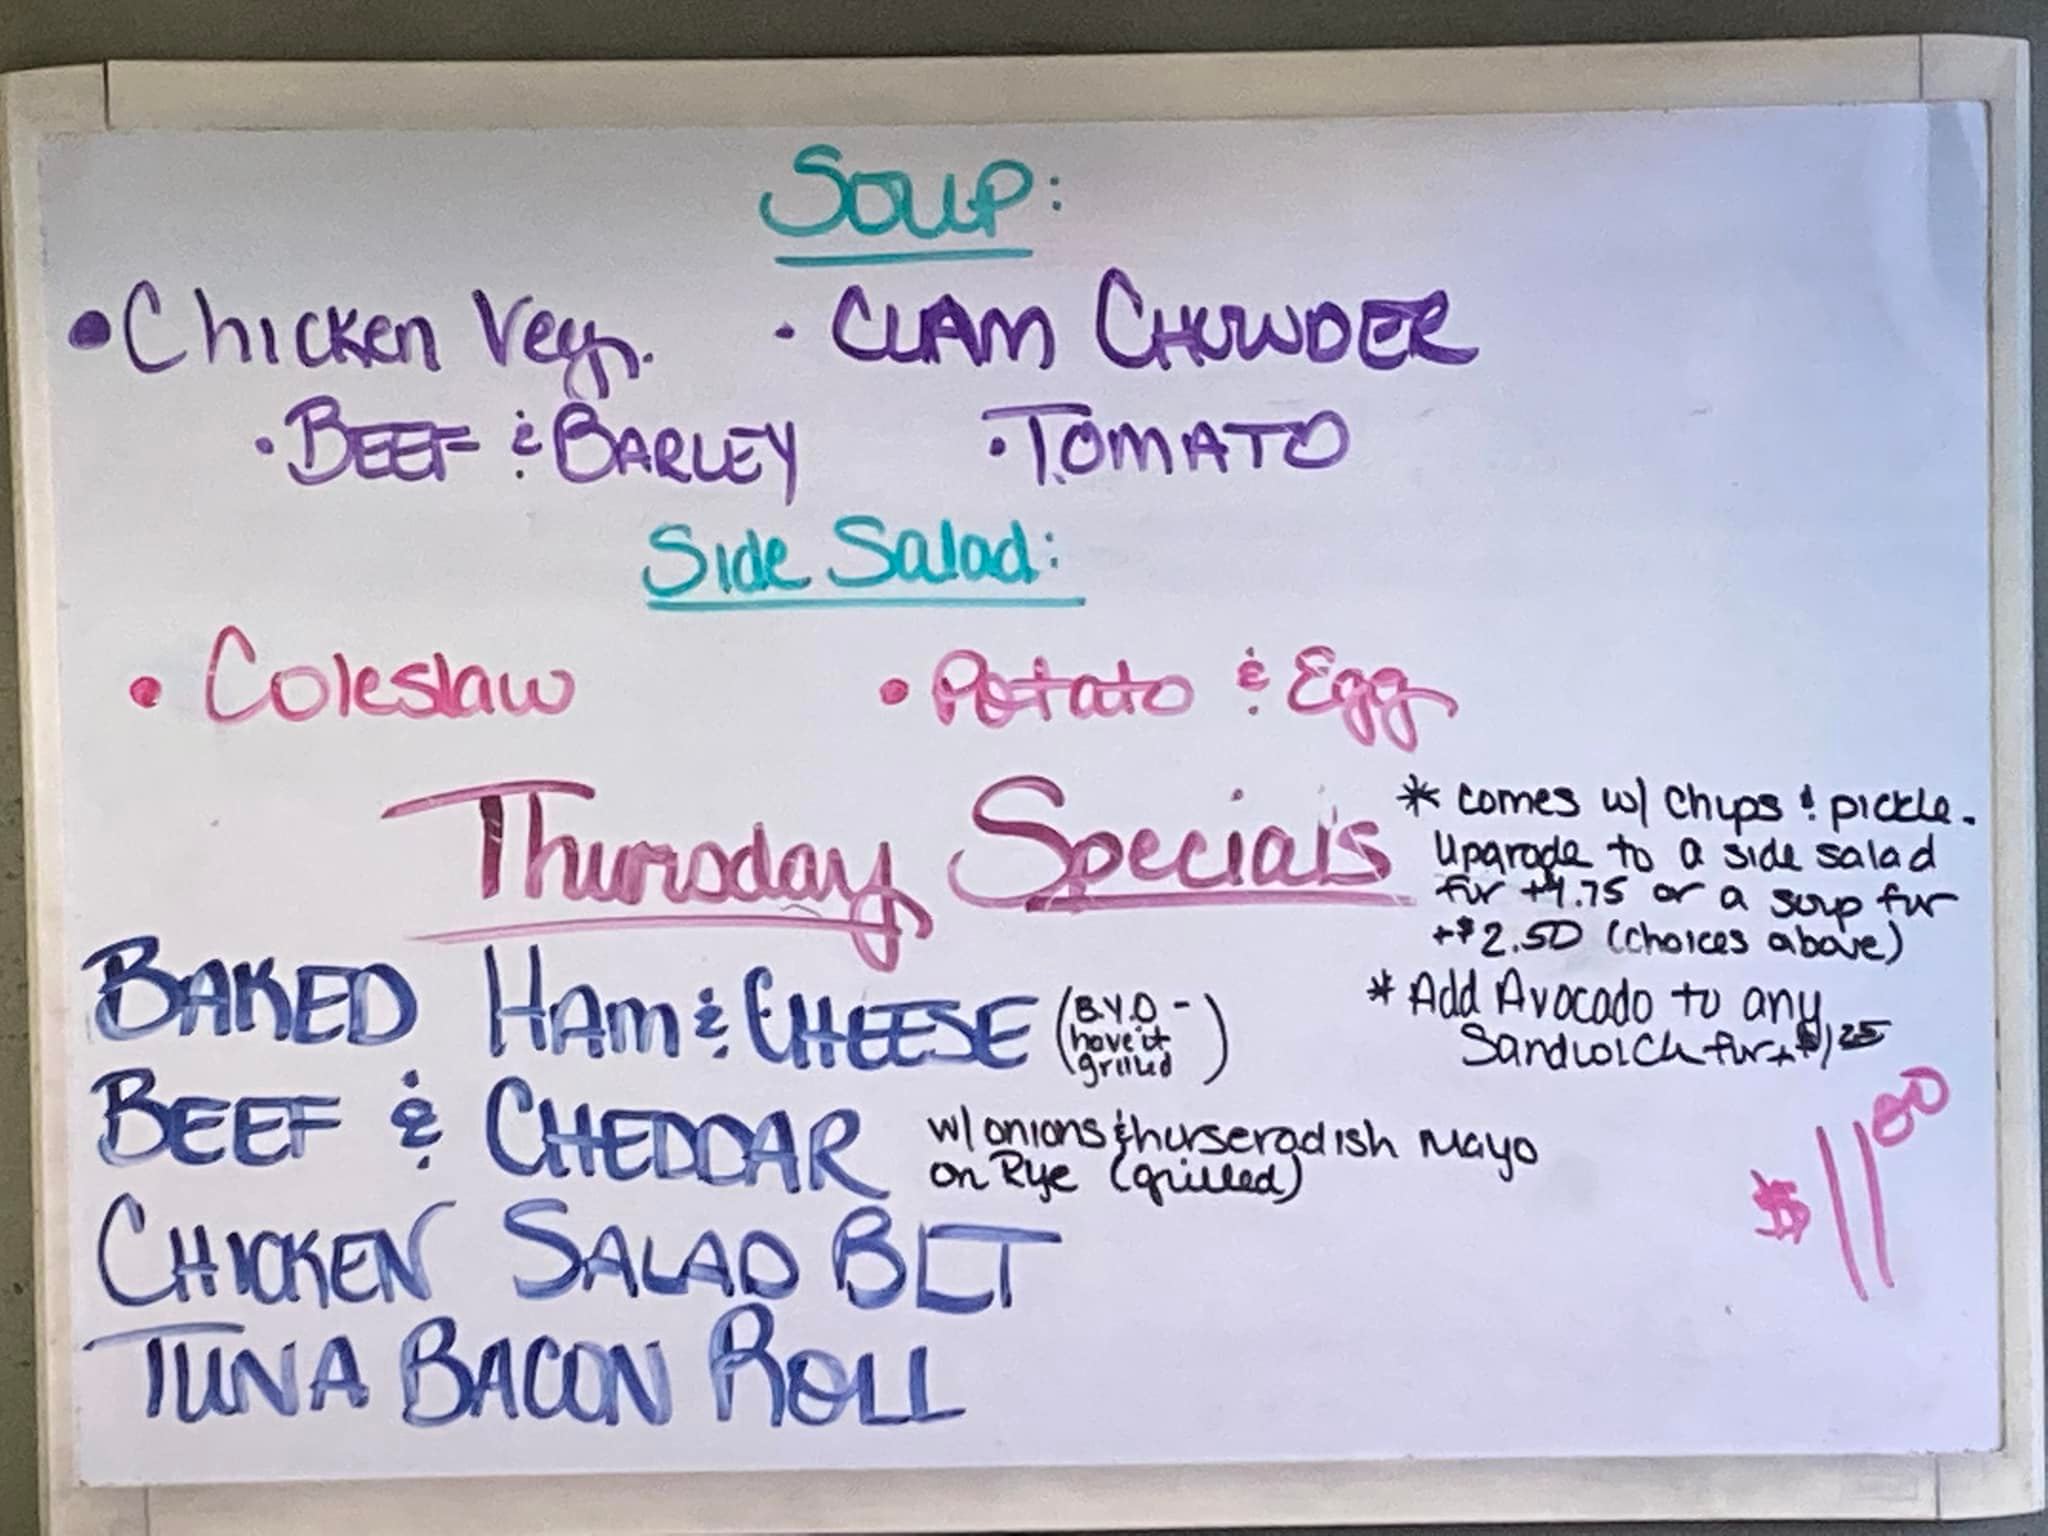 SOUP:
• Chicken Veg. • CLAM CHOWDER
• BEEF & BARLEY • TOMATO
Side Salad:
• Coleslaw • Potato & Egg
Thursday Specials
* comes w/ chips & pickle.
Upgrade to a side salad
for +1.75 or a soup for
+$2.50 (choices above)
* Add Avocado to any
Sandwich for +$1.25
BAKED HAM & CHEESE (B.Y.O - have it grilled)
BEEF & CHEDDAR w/ onions & horseradish mayo
on Rye (grilled)
$11.00
CHICKEN SALAD BLT
TUNA BACON ROLL